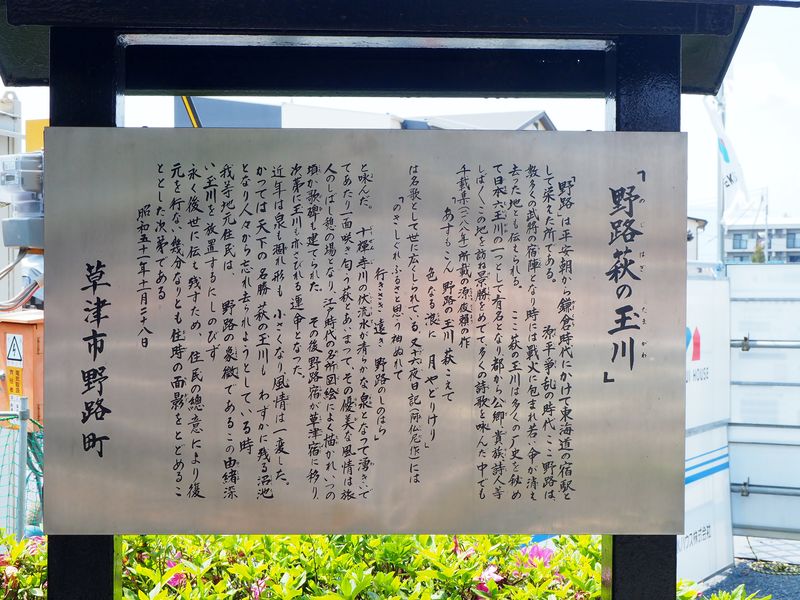 「野路萩の玉川」
のじはぎ たまがわ
「野路」は平安朝から鎌倉時代にかけて東海道の宿駅と
して栄えた所である。 源平争乱の時代 ここ野路は、
数多くの武将の宿陣となり時には戦火に包まれ若い命が消え
去った地とも伝えられる。 ここ萩の玉川は多くの歴史を秘め
て日本六玉川の一つとして有名となり都から公卿・貴族・詩人等
しばしばこの地を訪ね景勝をめでて、多くの詩歌を詠んだ中でも
千載集(一一八八年)所載の源俊頼の作
「あすもこん 野路の玉川 萩こえて
色なる浪に 月やどりけり」
は名歌として世に広くしられている。又十六夜日記(阿仏尼作)には
「のきしぐれ ふるさと思う 袖ぬれて
行きさき遠き 野路のしのはら」
と詠んだ。 十禅寺川の伏流水が清らかな泉となって湧きいで
てあたり一面咲き匂う萩とあいまって、その優美な風情は旅
人のしばし憩の場となり、江戸時代の名所図絵によく描かれ、いつの
頃か歌碑も建てられた。 その後野路宿が草津宿に移り、
次第に玉川もさびれる運命となった。
近年は泉も涸れ形も 小さくなり風情は一変した。
かつては天下の名勝・萩の玉川も わずかに残る沼池
となり人々から忘れ去られようとしている時
我等地元住民は、 野路の象徴であるこの由緒深
い玉川を放置するにしのびず、
永く後世に伝え残すため、住民の總意により復
元を行ない、幾分なりとも往時の面影をとどめるこ
ととした次第である
昭和五十一年十一月二十八日
草津市野路町